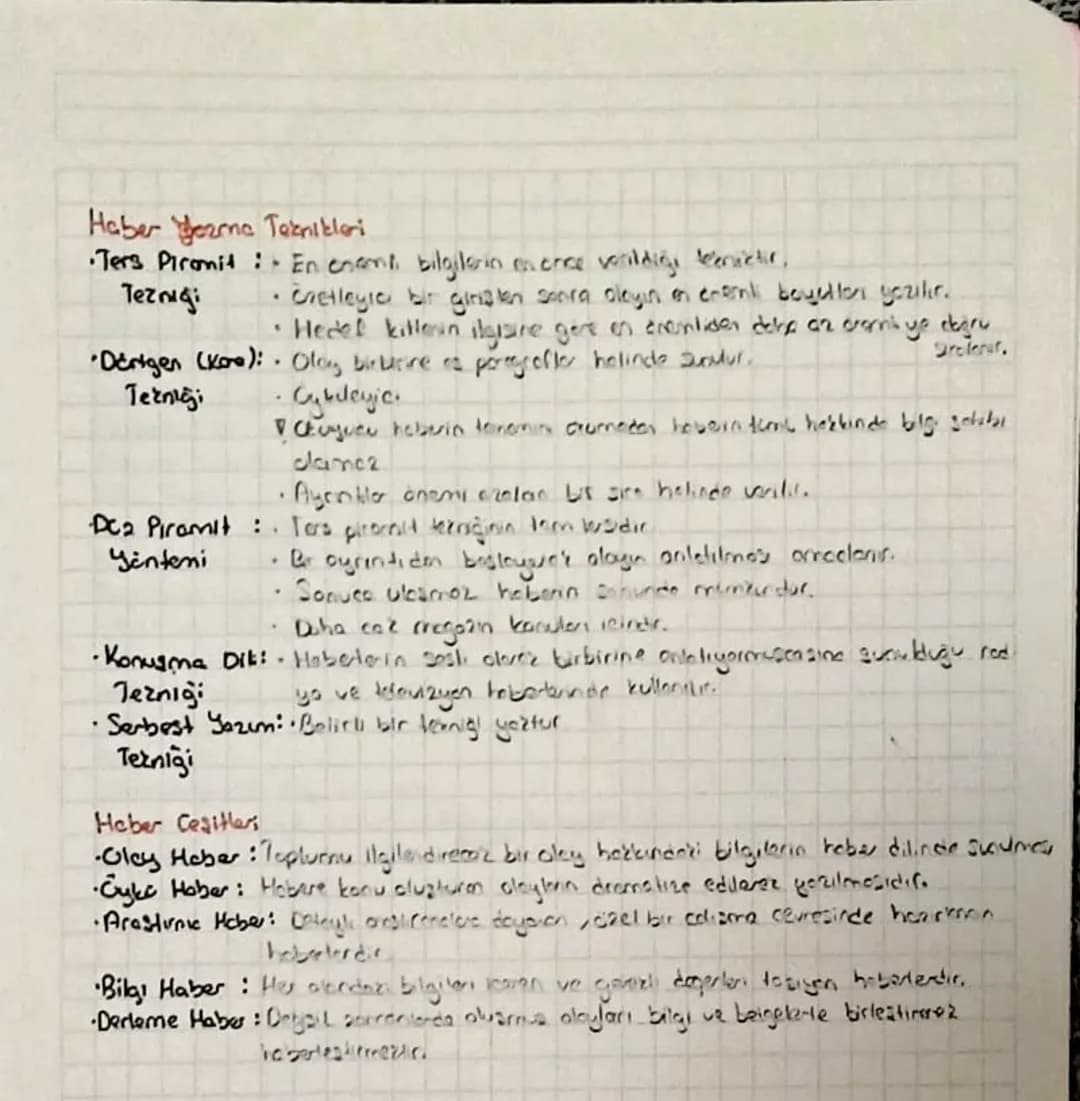 Haber Yazma Teknikleri
•Ters Piramit : • En önemli bilgilerin en önce verildiği tekniktir.
Tekniği • Özetleyici bir girişten sonra olayın en önemli boyutları yazılır.
• Hedef kitlenin ilgisine göre en önemliden daha az önemliye doğru
sıralanır.
•Dörtgen (Kare): • Olay birbirine eş paragraflar halinde sunulur.
Tekniği • Öyküleyici
Okuyucu haberin tamamını okumadan haberin tümü hakkında bilgi sahibi
olamaz
• Ayrıntılar önemi azalan bir sıra halinde verilir.
Düz Piramit : • Ters piramit tekniğinin tam tersidir
Yöntemi • Bir ayrıntıdan başlayarak olayın anlatılması amaçlanır.
• Sonuca ulaşmak haberin sonunda mümkündür.
• Daha çok magazin konuları içindir.
•Konuşma Dili: • Haberlerin sesli olarak birbirine anlatıyormuşcasına sunulduğu rad
Tekniği yo ve televizyon haberlerinde kullanılır.
• Serbest Yazım: • Belirli bir tekniği yoktur
Tekniği
Haber Çeşitleri
•Olay Haber : Toplumu ilgilendirecek bir olay hakkındaki bilgilerin haber dilinde sunulması
•Öykü Haber : Habere konu oluşturan olayların dramatize edilerek yazılmasıdır.
•Araştırma Haber: Detaylı araştırmalara dayanan, özel bir çalışma çevresinde hazırlanan
haberlerdir
•Bilgi Haber : Her alandaki bilgileri içeren ve gerekli değerleri taşıyan haberlerdir.
•Derleme Haber : Değişik zamanlarda oluşmuş olayları bilgi ve belgelerle birleştirerek
haberleştirmektir.